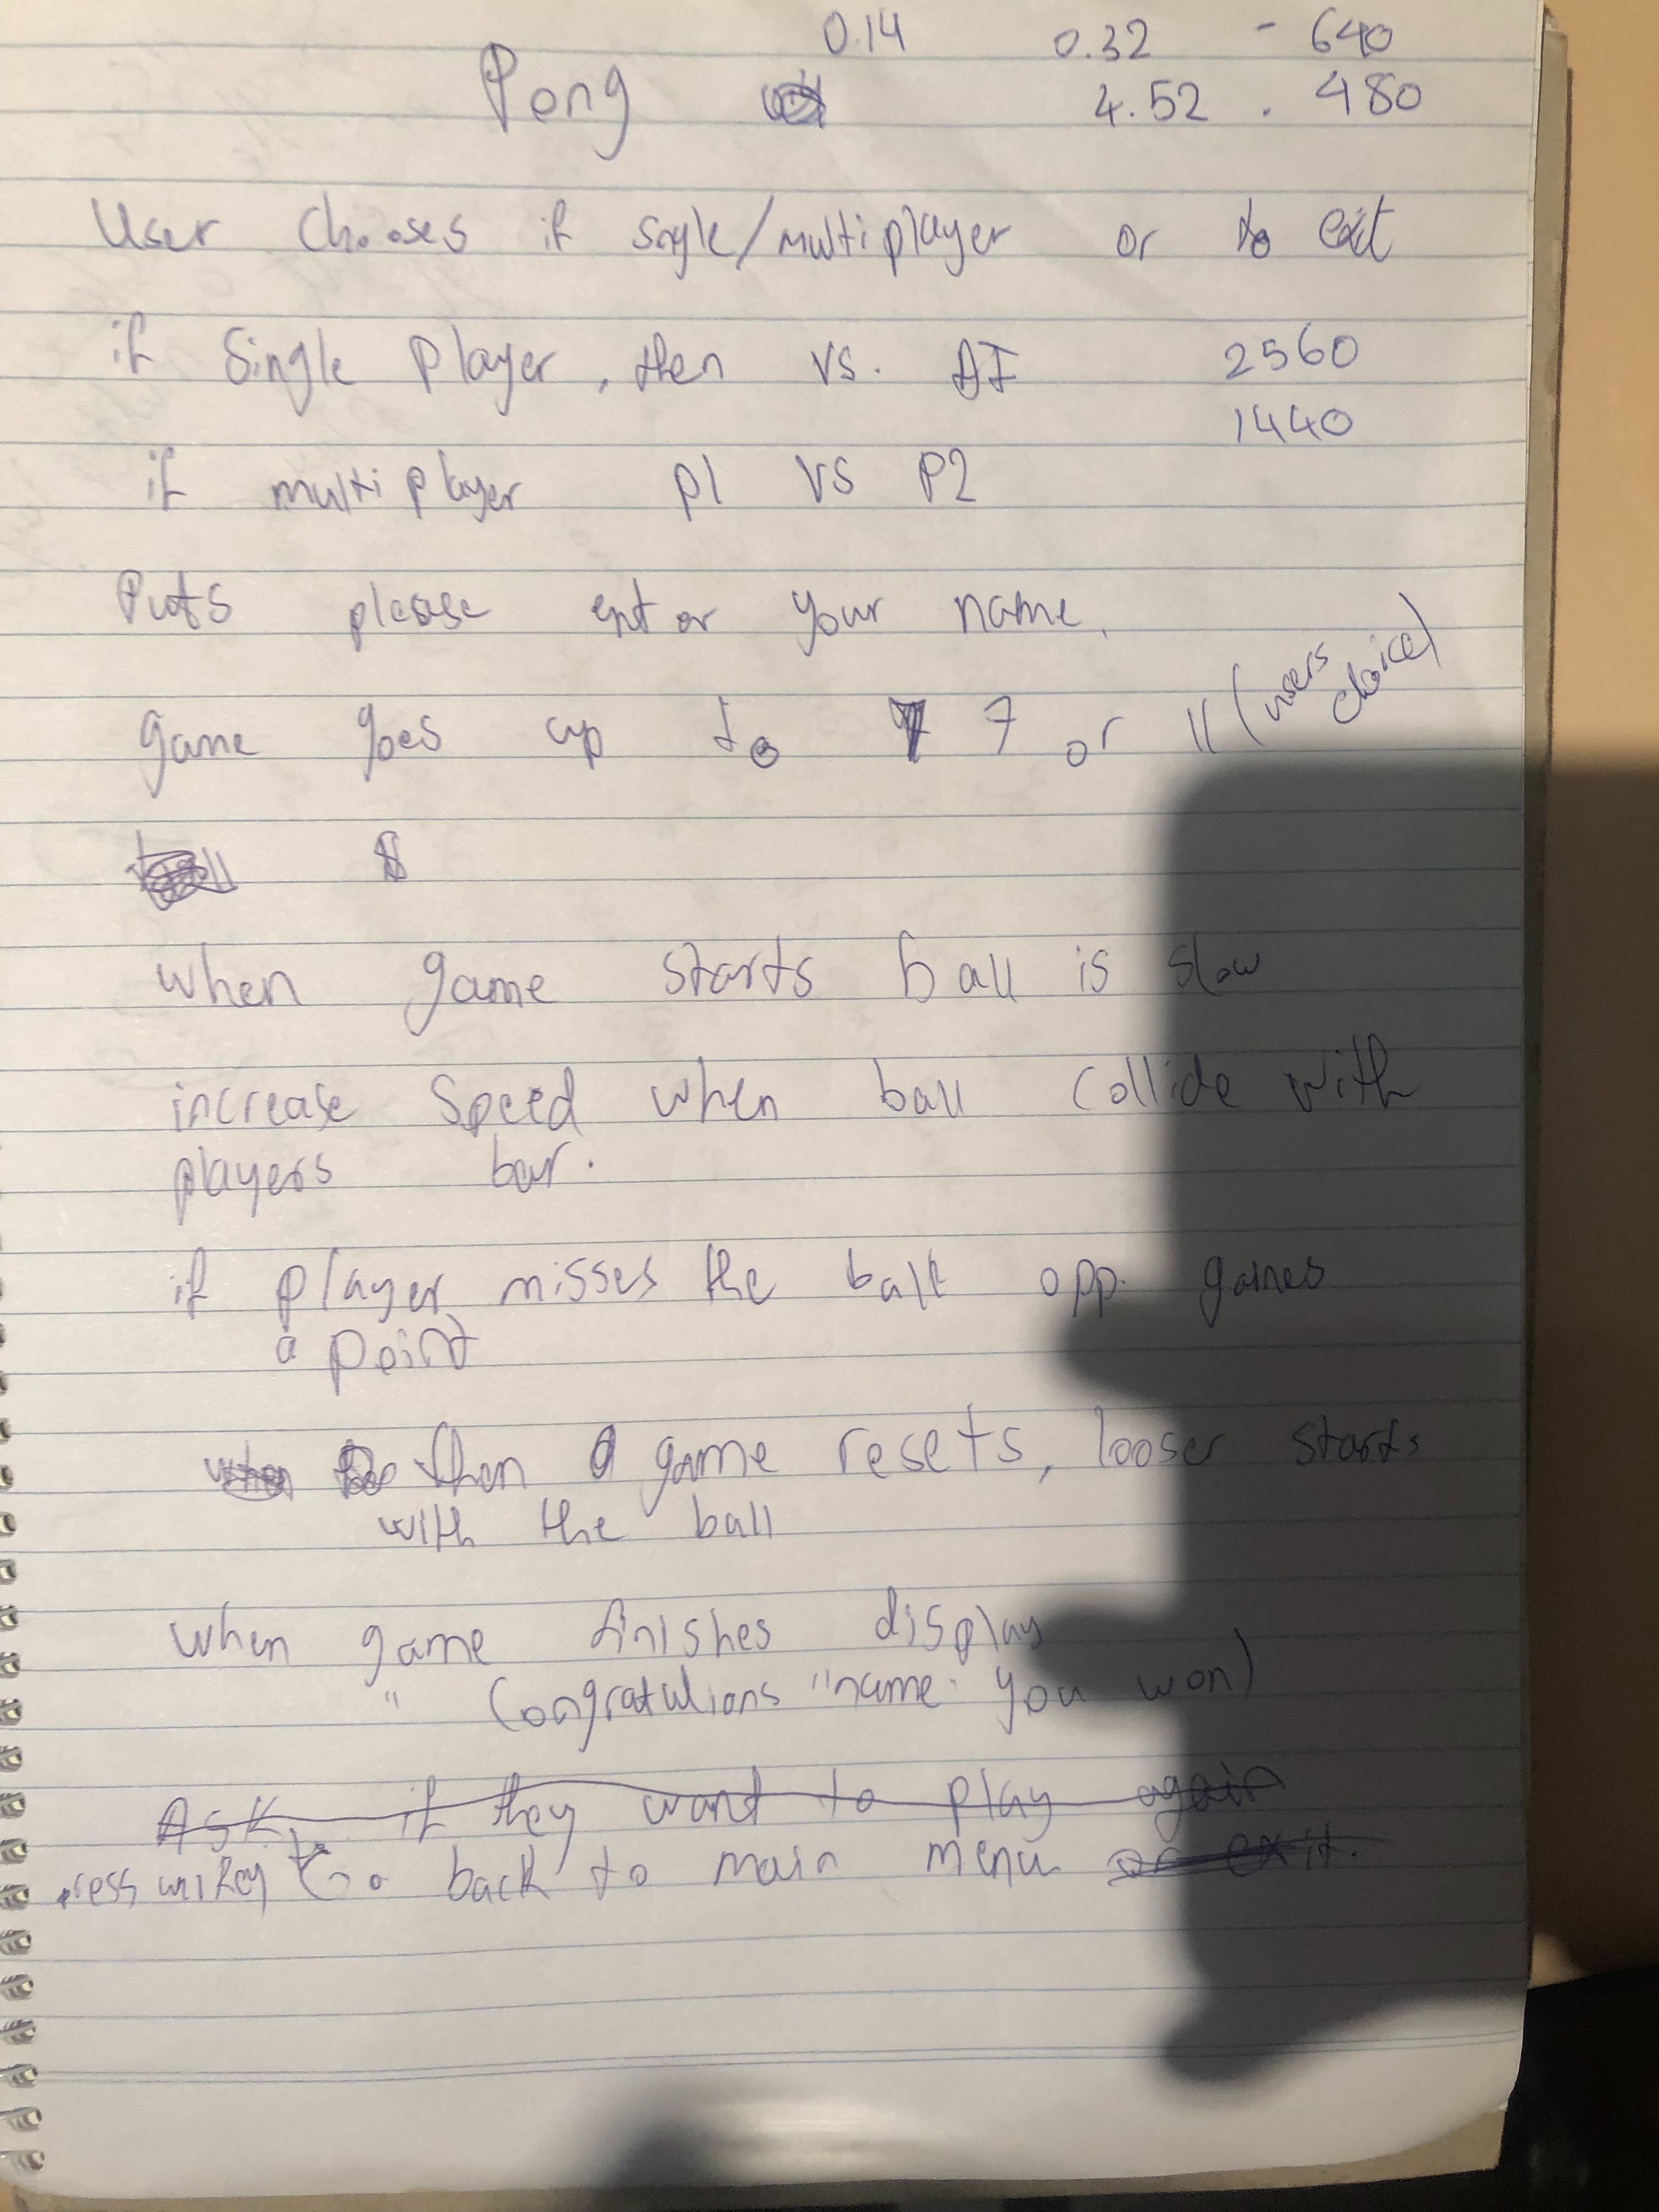 0.14 0.32 - 640
Pong 4.52 . 480
User Chooses if single/multiplayer or to exit
if Single Player, then vs. AI 2560
1440
if multiplayer P1 VS P2
Puts please enter your name.
game goes up to 7 or 11 (users choice)
when game starts ball is slow
increase Speed when ball collide with
players bar.
if player misses the ball opp. games
a point
then game resets, looser starts
with the ball
when game finishes display
" Congratulions "name. you won)
Ask if they want to play again
press to Go back to main menu or exit.